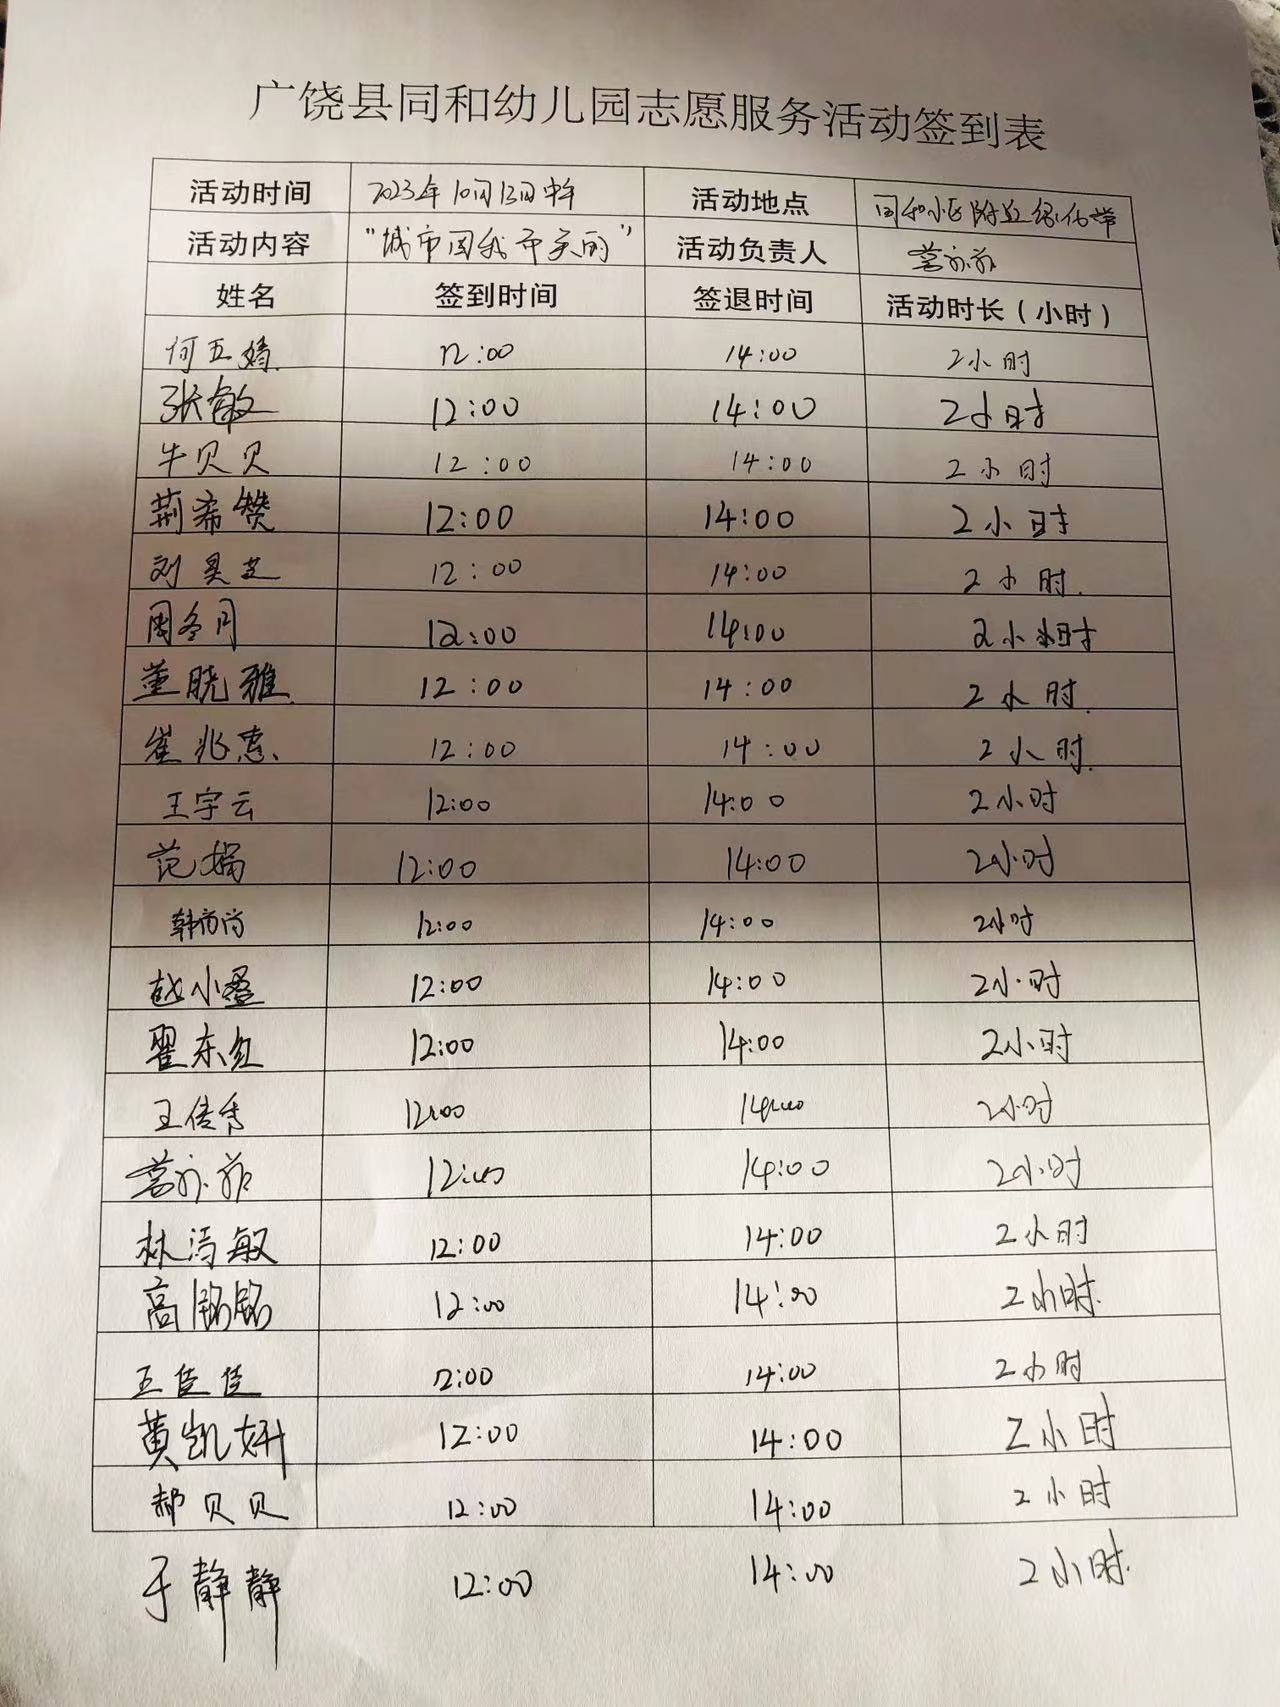 广饶县同和幼儿园志愿服务活动签到表
活动时间 2023年10月13日中午 活动地点 同和小区附近绿化带
活动内容 “城市因我而美丽” 活动负责人
姓名 签到时间 签退时间 活动时长（小时）
何玉婧 12:00 14:00 2小时
张敏 12:00 14:00 2小时
牛贝贝 12:00 14:00 2小时
荆希赞 12:00 14:00 2小时
刘昊芝 12:00 14:00 2小时.
周冬月 12:00 14:00 2小时
董晓雅. 12:00 14:00 2小时.
崔兆惠. 12:00 14:00 2小时.
王宇云 12:00 14:00 2小时
范娟 12:00 14:00 2小时
韩尚尚 12:00 14:00 2小时
赵小盈 12:00 14:00 2小时
翟东红 12:00 14:00 2小时
王传秀 12:00 14:00 2小时
12:00 14:00 2小时
林清敏 12:00 14:00 2小时
高铭铭 12:00 14:00 2小时.
王佳佳 12:00 14:00 2小时
黄凯妍 12:00 14:00 2小时
郝贝贝 12:00 14:00 2小时
于静静 12:00 14:00 2小时.